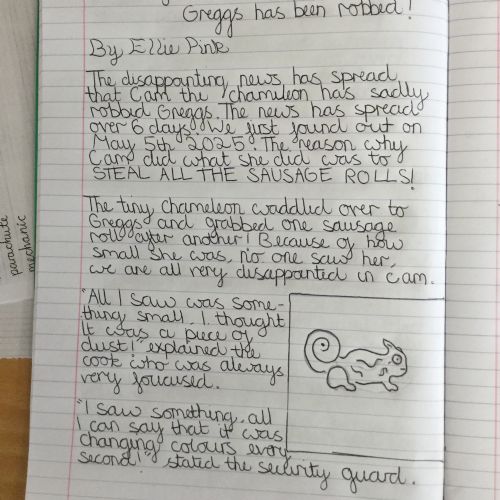 Greggs has been robbed!
By Ellie Pink
The disapponting news has spread
that Cam the chamileon has sadly
robbed Greggs. The news has spread
over 6 days! We first found out on
May 5th 2025! The reason why
Cam did what she did was to
STEAL ALL THE SAUSAGE ROLLS!
The tiny chameleon waddled over to
Greggs and grabbed one sausage
roll after another! Because of how
small she was, no one saw her,
we are all very disapponted in Cam.
"All I saw was some-
thing small. I thought
it was a piece of
dust!" explained the
cook who was always
very foucused.
"I saw something, all
I can say that it was
changing colours every
second!" stated the security guard.
parachute
mechanic